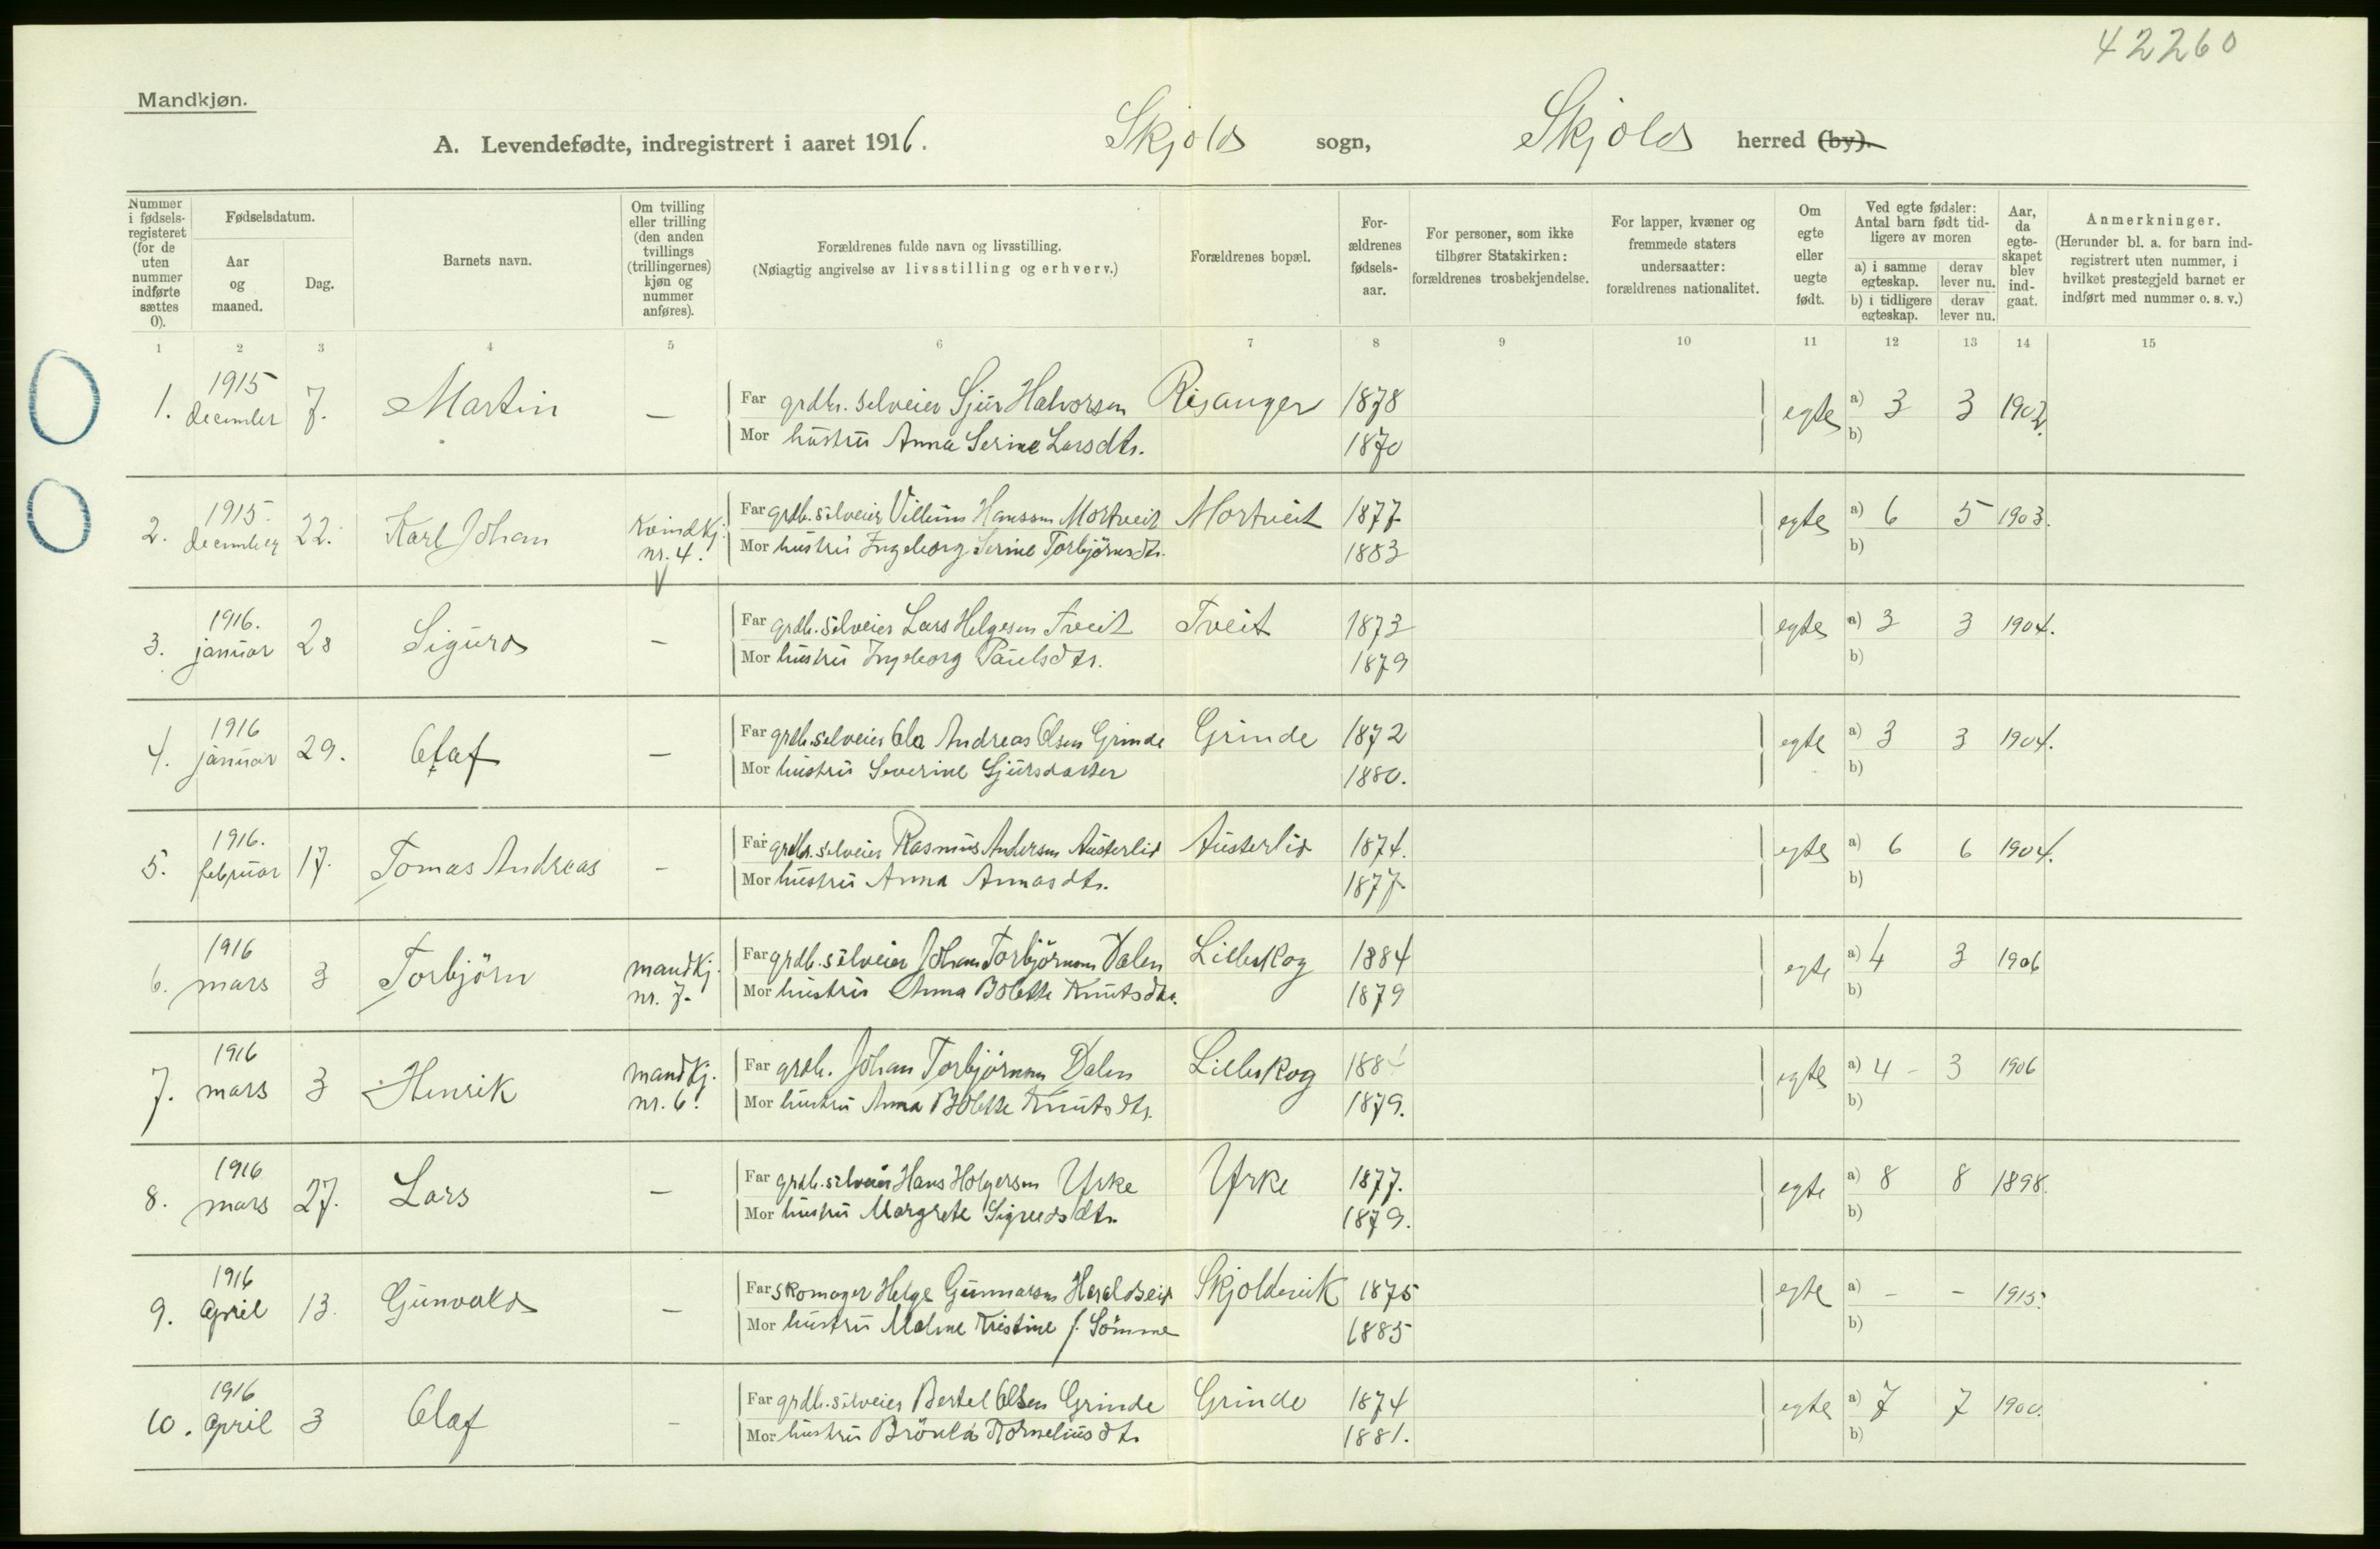 42260
Mandkjøn.
A. Levendefødte, indregistrert i aaret 1916. Skjold sogn, Skjold herred (by).
Nummer i fødselsregisteret (for de uten nummer indførte sættes 0).
Fødselsdatum.
Aar og maaned.
Dag.
Barnets navn.
Om tvilling eller trilling (den anden tvillings (trillingernes) kjøn og nummer anføres).
Forældrenes fulde navn og livsstilling.
(Nøiagtig angivelse av livsstilling og erhverv.)
Forældrenes bopæl.
Forældrenes fødselsaar.
For personer, som ikke tilhører Statskirken: forældrenes trosbekjendelse.
For lapper, kvæner og fremmede staters undersaatter: forældrenes nationalitet.
Om egte eller uegte født.
Ved egte fødsler: Antal barn født tidligere av moren
a) i samme egteskap. derav lever nu.
b) i tidligere egteskap. derav lever nu.
Aar, da egteskapet blev indgaat.
Anmerkninger.
(Herunder bl. a. for barn indregistrert uten nummer, i hvilket prestegjeld barnet er indført med nummer o. s. v.)
1 2 3 4 5 6 7 8 9 10 11 12 13 14 15
1. 1915 december 7. Martin — Far grdbr. selveier Sjur Halvorsen Risanger 1878 egte a) 3 3 1902.
Mor hustru Anna Serine Larsdtr. 1870 b)
2. 1915. december 22. Karl Johan kvindkj. nr. 4. Far grdb. selveier Villum Hansen Mortveit Mortveit 1877 egte a) 6 5 1903.
Mor hustru Ingeborg Serine Torbjørnsdtr. 1883 b)
3. 1916. januar 28 Sigurd — Far grdb. selveier Lars Helgesen Tveit Tveit 1873 egte a) 3 3 1904.
Mor hustru Ingeborg Paulsdtr. 1879 b)
4. 1916 januar 29. Olaf — Far grdb. selveier Ola Andreas Olsen Grinde Grinde 1872 egte a) 3 3 1904.
Mor hustru Severine Sjursdatter 1880. b)
5. 1916. februar 17. Tomas Andreas — Far grdb. selveier Rasmus Andersen Austerlid Austerlid 1874. egte a) 6 6 1904.
Mor hustru Anna Annasdtr. 1877 b)
6. 1916 mars 3 Torbjörn mandkj. nr. 7. Far grdb. selveier Johan Torbjörnsen Dalen Lilleskog 1884 egte a) 4 3 1906
Mor hustru Anna Bolette Knutsdtr. 1879 b)
7. 1916 mars 3 Henrik mandkj. nr. 6. Far grdb. Johan Torbjörnsen Dalen Lilleskog 1884 egte a) 4 - 3 1906
Mor hustru Anna Bolette Knutsdtr. 1879. b)
8. 1916 mars 27. Lars — Far grdb. selveier Hans Holgersen Yrke Yrke 1877. egte a) 8 8 1898.
Mor hustru Margrete Sigurdsdtr. 1879. b)
9. 1916 April 13. Gunvald — Far skomager Helge Gunnarsen Haraldseid Skjoldevik 1875 egte a) - - 1915.
Mor hustru Malene Kristine f. Sømme 1885 b)
10. 1916 April 3 Olaf — Far grdb. selveier Bertel Olsen Grinde Grinde 1874 egte a) 7 7 1900.
Mor hustru Brönla Korneliusdtr. 1881. b)